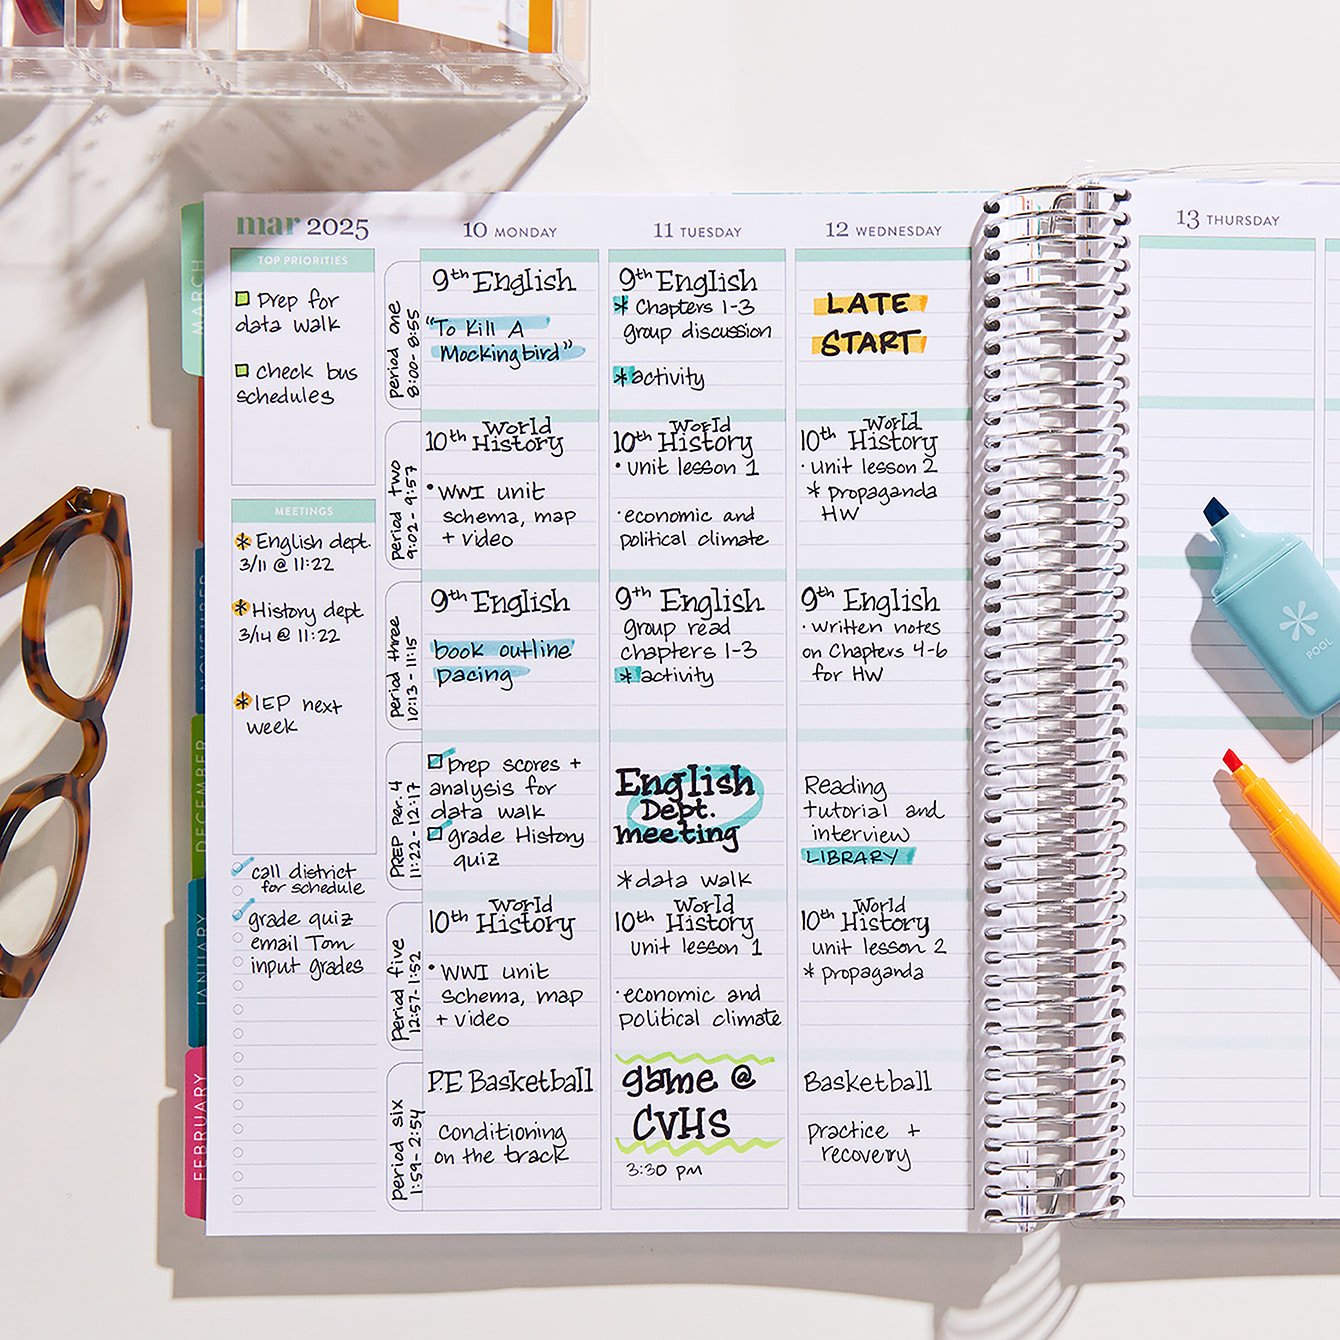 mar 2025
10 MONDAY
11 TUESDAY
12 WEDNESDAY
13 THURSDAY
MARCH
NOVEMBER
DECEMBER
JANUARY
FEBRUARY
TOP PRIORITIES
Prep for
data walk
check bus
schedules
MEETINGS
* English dept.
3/11 @ 11:22
* History dept
3/14 @ 11:22
* IEP next
week
call district
for schedule
grade quiz
email Tom
input grades
period one
8:00- 8:55
9th English
"To Kill A
Mockingbird"
9th English
* Chapters 1-3
group discussion
* activity
LATE
START
period two
9:02- 9:57
10th World
History
• WWI unit
schema, map
+ video
10th World
History
• unit lesson 1
• economic and
political climate
10th World
History
• unit lesson 2
* propaganda
HW
period three
10:13 - 11:15
9th English
book outline
pacing
9th English
group read
chapters 1-3
* activity
9th English
• written notes
on Chapters 4-6
for HW
PREP Per. 4
11:22 - 12:17
prep scores +
analysis for
data walk
grade History
quiz
English
Dept.
meeting
* data walk
Reading
tutorial and
interview
LIBRARY
Period five
12:57- 1:52
10th World
History
• WWI unit
schema, map
+ video
10th World
History
unit lesson 1
• economic and
political climate
10th World
History
unit lesson 2
* propaganda
Period six
1:59- 2:54
P.E Basketball
Conditioning
on the track
game @
CVHS
3:30 pm
Basketball
practice +
recovery
POOL